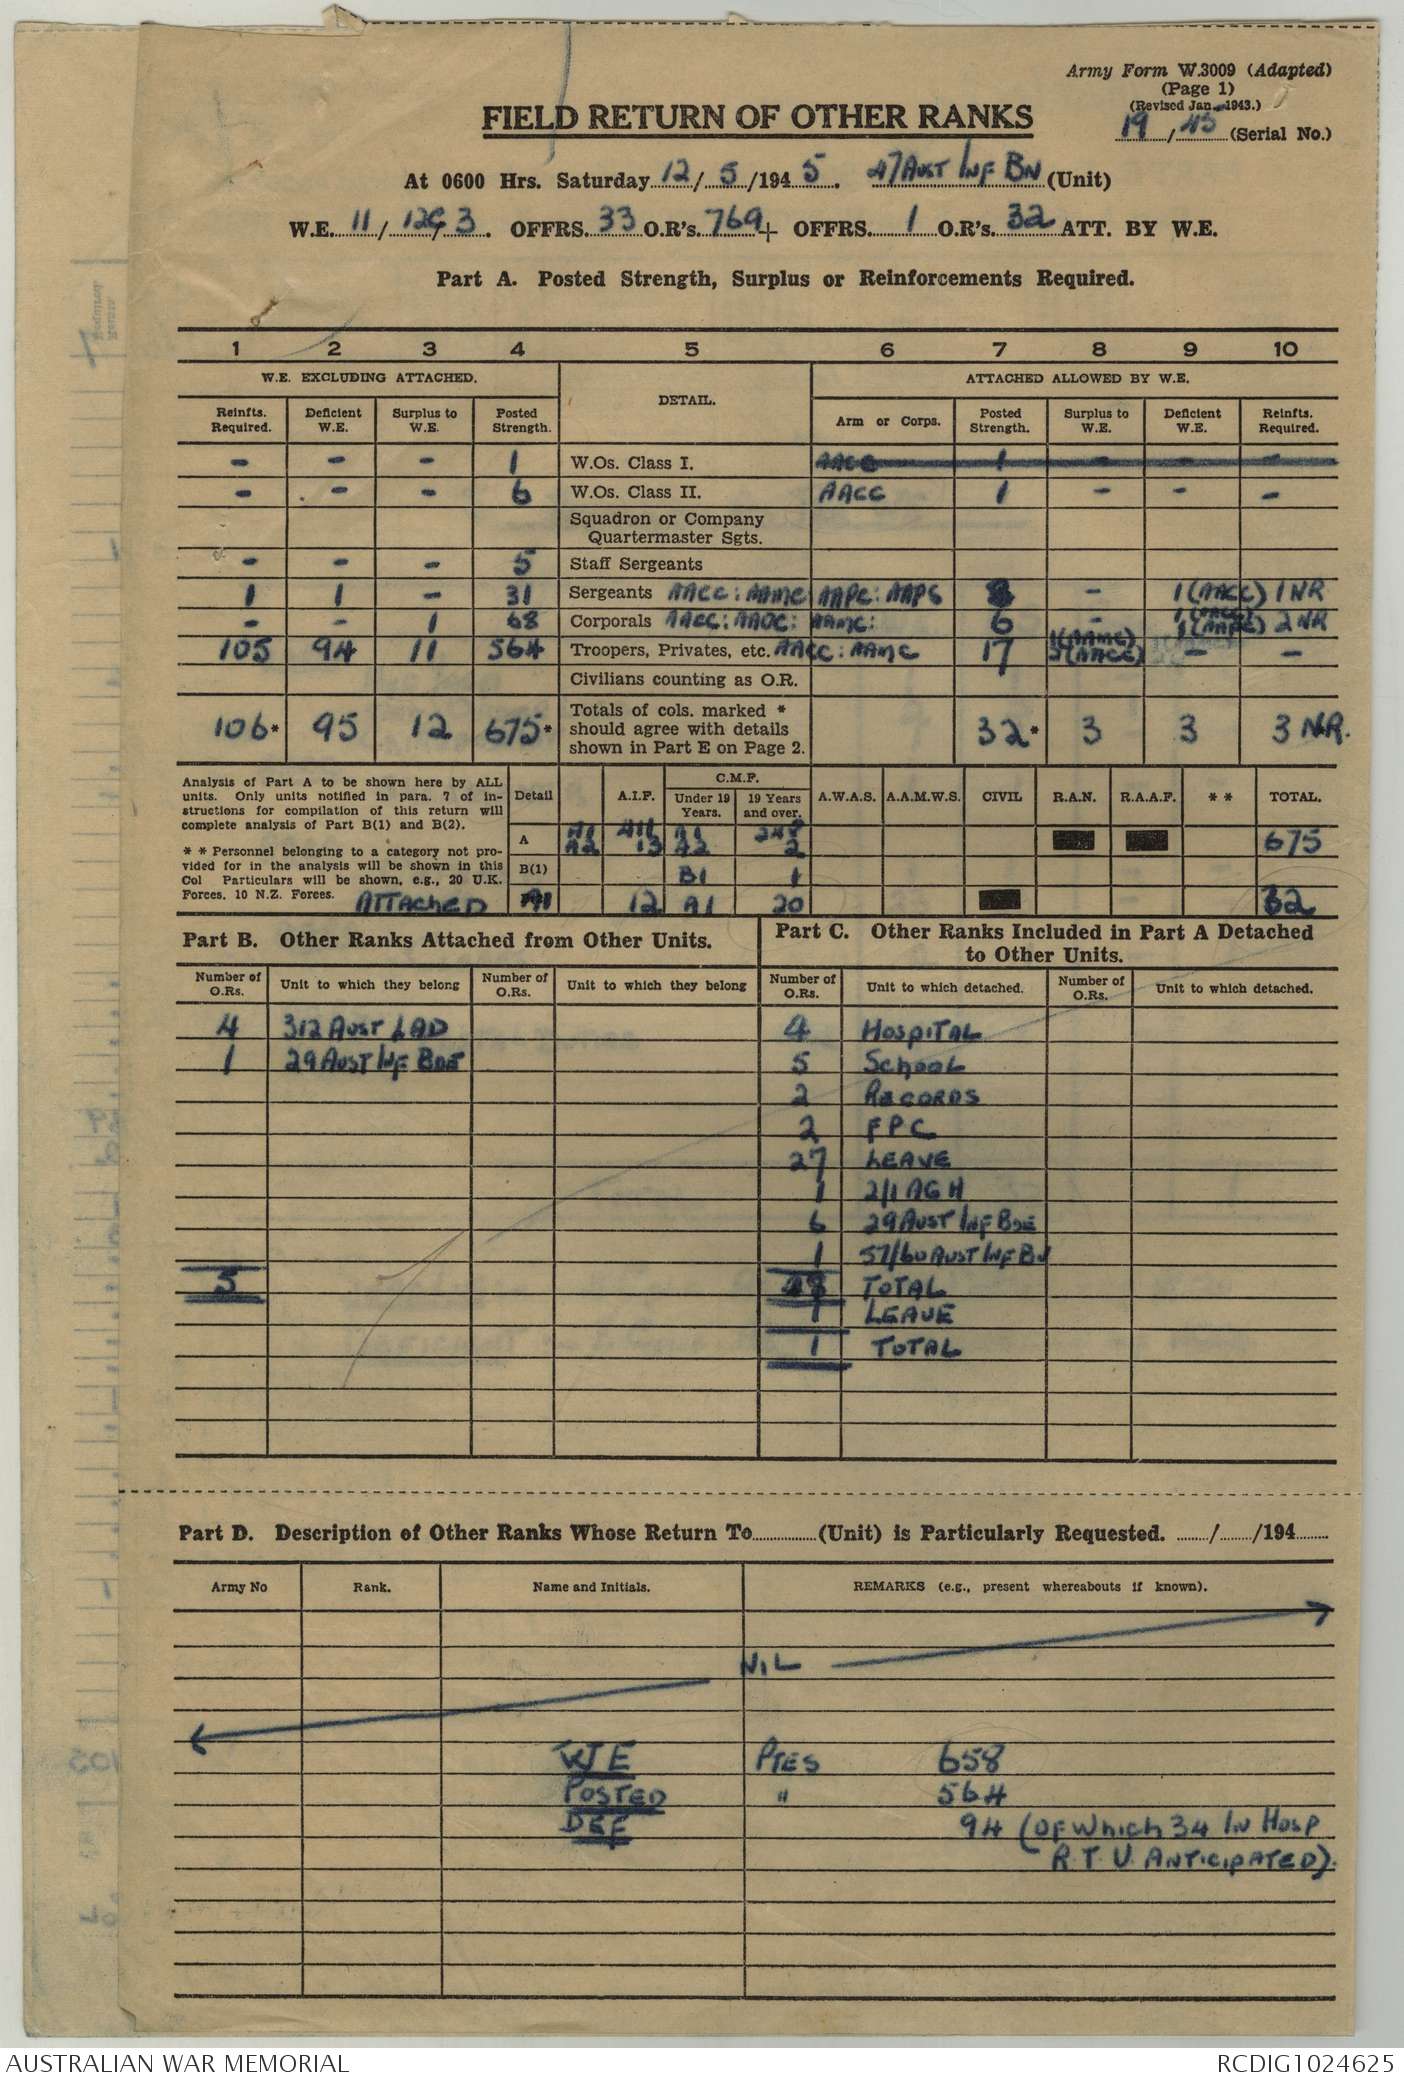 Army Form W.3009 (Adapted)
(Page 1)
(Revised Jan. 1943.)
FIELD RETURN OF OTHER RANKS
19/45 (Serial No.)
At 0600 Hrs. Saturday 12/5/1945. 47 AUST INF BN (Unit)
W.E. 11/12C/3. OFFRS. 33 O.R's. 769 + OFFRS. 1 O.R's. 32 ATT. BY W.E.
Part A. Posted Strength, Surplus or Reinforcements Required.
1 2 3 4 5 6 7 8 9 10
W.E. EXCLUDING ATTACHED. DETAIL. ATTACHED ALLOWED BY W.E.
Reinfts. Required. Deficient W.E. Surplus to W.E. Posted Strength. Arm or Corps. Posted Strength. Surplus to W.E. Deficient W.E. Reinfts. Required.
- - - 1 W.Os. Class I. AACC 1 - - -
- - - 6 W.Os. Class II. AACC 1 - - -
Squadron or Company
Quartermaster Sgts.
- - - 5 Staff Sergeants
1 1 - 31 Sergeants AACC: AAMC AAPC: AAPS 8 - 1 (AACC) 1 NR
- - 1 68 Corporals AACC: AAOC: AAMC: 6 - 1 (AACC) 1 (AAPC) 2 NR
105 94 11 564 Troopers, Privates, etc. AACC: AAMC 17 1 (AAMC) (AACC) - -
Civilians counting as O.R.
106* 95 12 675* Totals of cols. marked * should agree with details shown in Part E on Page 2. 32* 3 3 3 NR.
Analysis of Part A to be shown here by ALL
units. Only units notified in para. 7 of in-
structions for compilation of this return will
complete analysis of Part B(1) and B(2).
* * Personnel belonging to a category not pro-
vided for in the analysis will be shown in this
Col Particulars will be shown, e.g., 20 U.K.
Forces, 10 N.Z. Forces. ATTACHED
Detail A.I.F. C.M.F. Under 19 Years. 19 Years and over. A.W.A.S. A.A.M.W.S. CIVIL R.A.N. R.A.A.F. * * TOTAL.
A A1 411 A1 248 675
A2 13 A2 2
B(1) B1 1
A1 12 A1 20 32
Part B. Other Ranks Attached from Other Units.
Number of O.Rs. Unit to which they belong Number of O.Rs. Unit to which they belong
4 312 AUST LAD
1 29 AUST INF BDE
5
Part C. Other Ranks Included in Part A Detached
to Other Units.
Number of O.Rs. Unit to which detached. Number of O.Rs. Unit to which detached.
4 HOSPITAL
5 SCHOOL
2 RECORDS
2 FPC
27 LEAVE
1 2/1 AGH
6 29 AUST INF BDE
1 57/60 AUST INF BN
48 TOTAL
1 LEAVE
1 TOTAL
Part D. Description of Other Ranks Whose Return To (Unit) is Particularly Requested. / /194
Army No Rank. Name and Initials. REMARKS (e.g., present whereabouts if known).
NIL
W E PTES 658
POSTED " 564
DEF 94 (OF WHICH 34 IN HOSP
R.T.U. ANTICIPATED).
AUSTRALIAN WAR MEMORIAL RCDIG1024625